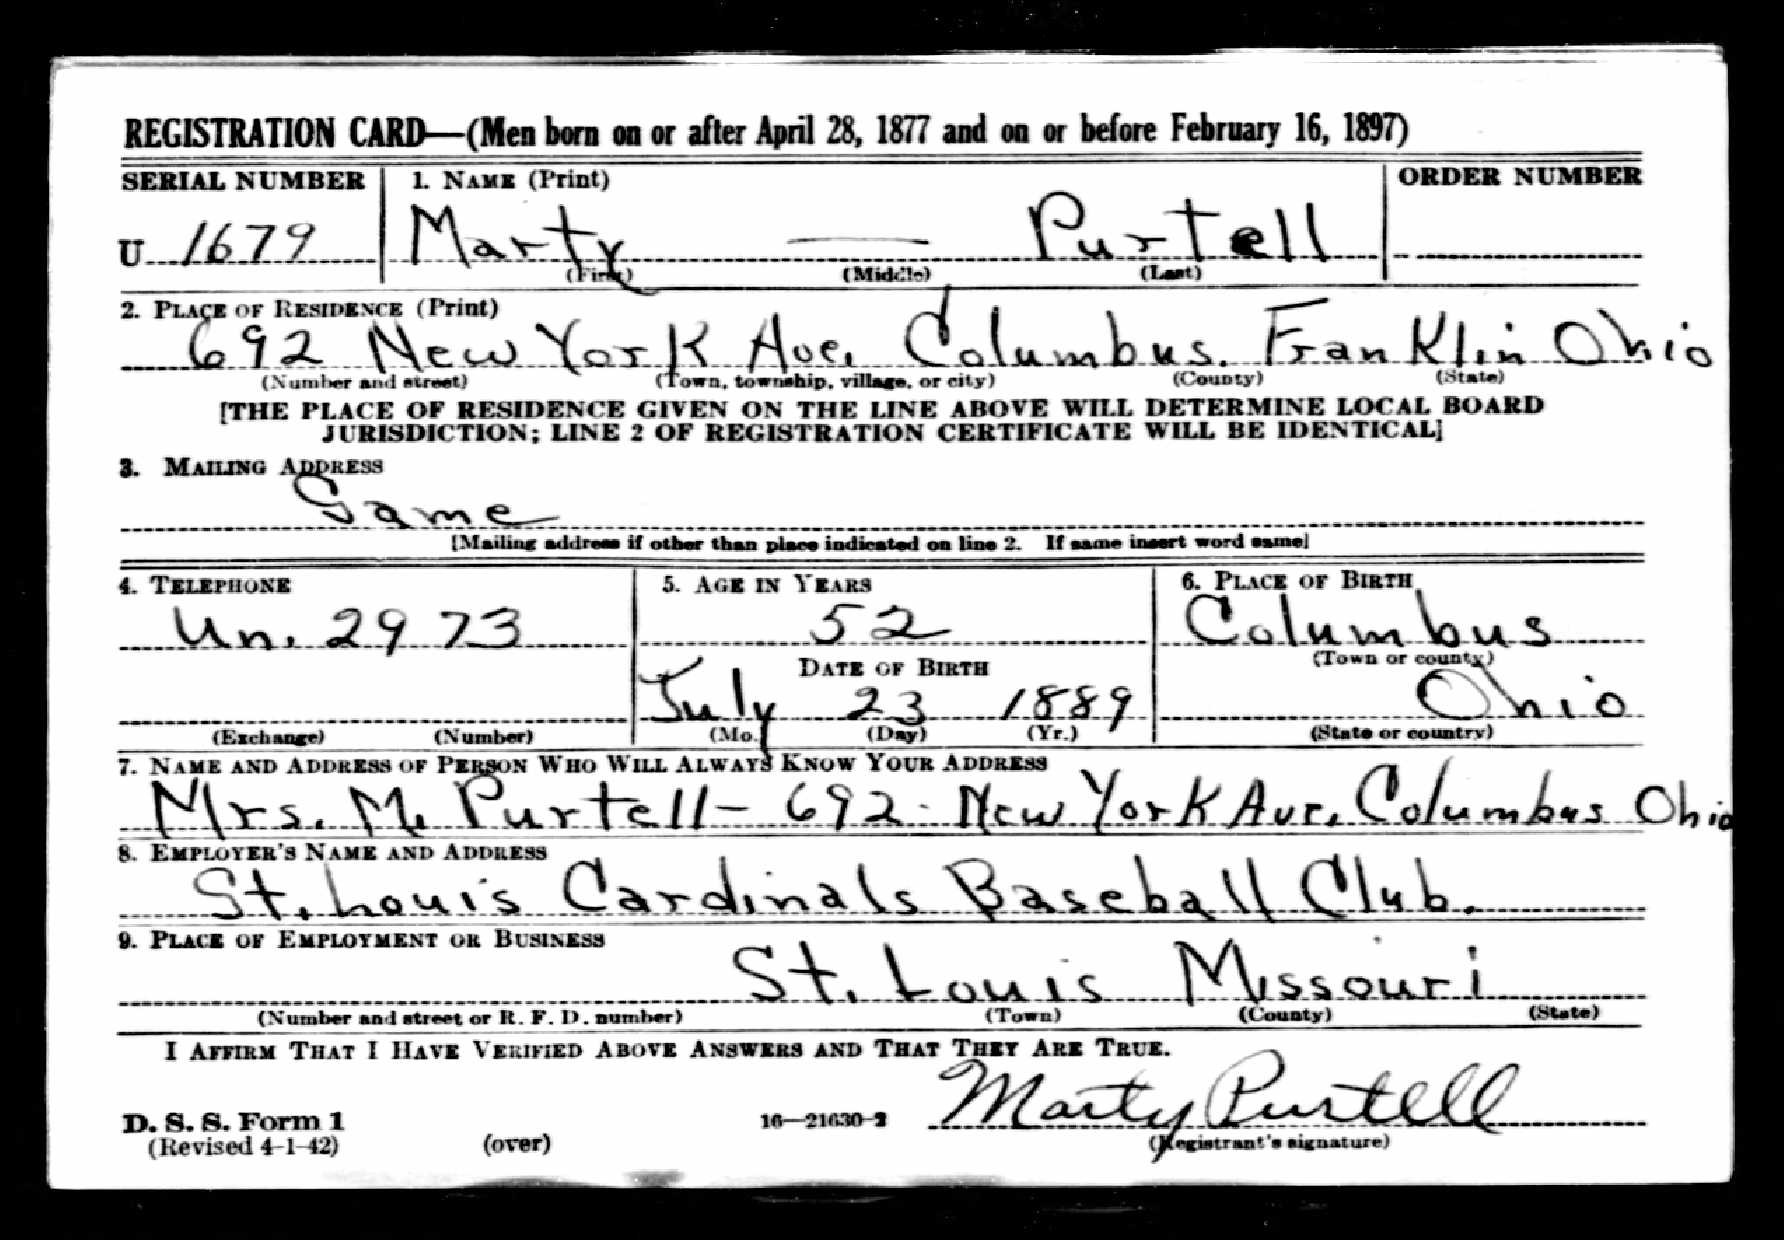 REGISTRATION CARD—(Men born on or after April 28, 1877 and on or before February 16, 1897)
SERIAL NUMBER 1. NAME (Print) ORDER NUMBER
U 1679 Marty — Purtell
(First) (Middle) (Last)
2. PLACE OF RESIDENCE (Print)
692 New York Ave. Columbus. Franklin Ohio
(Number and street) (Town, township, village, or city) (County) (State)
[THE PLACE OF RESIDENCE GIVEN ON THE LINE ABOVE WILL DETERMINE LOCAL BOARD
JURISDICTION; LINE 2 OF REGISTRATION CERTIFICATE WILL BE IDENTICAL]
3. MAILING ADDRESS
Same
[Mailing address if other than place indicated on line 2. If same insert word same]
4. TELEPHONE 5. AGE IN YEARS 6. PLACE OF BIRTH
Un. 2973 52 Columbus
DATE OF BIRTH (Town or county)
July 23 1889 Ohio
(Exchange) (Number) (Mo.) (Day) (Yr.) (State or country)
7. NAME AND ADDRESS OF PERSON WHO WILL ALWAYS KNOW YOUR ADDRESS
Mrs. M. Purtell - 692 New York Ave. Columbus Ohio
8. EMPLOYER'S NAME AND ADDRESS
St. Louis Cardinals Baseball Club.
9. PLACE OF EMPLOYMENT OR BUSINESS
St. Louis Missouri
(Number and street or R. F. D. number) (Town) (County) (State)
I AFFIRM THAT I HAVE VERIFIED ABOVE ANSWERS AND THAT THEY ARE TRUE.
Marty Purtell
D. S. S. Form 1 16—21630-2
(Revised 4-1-42) (over) (Registrant's signature)